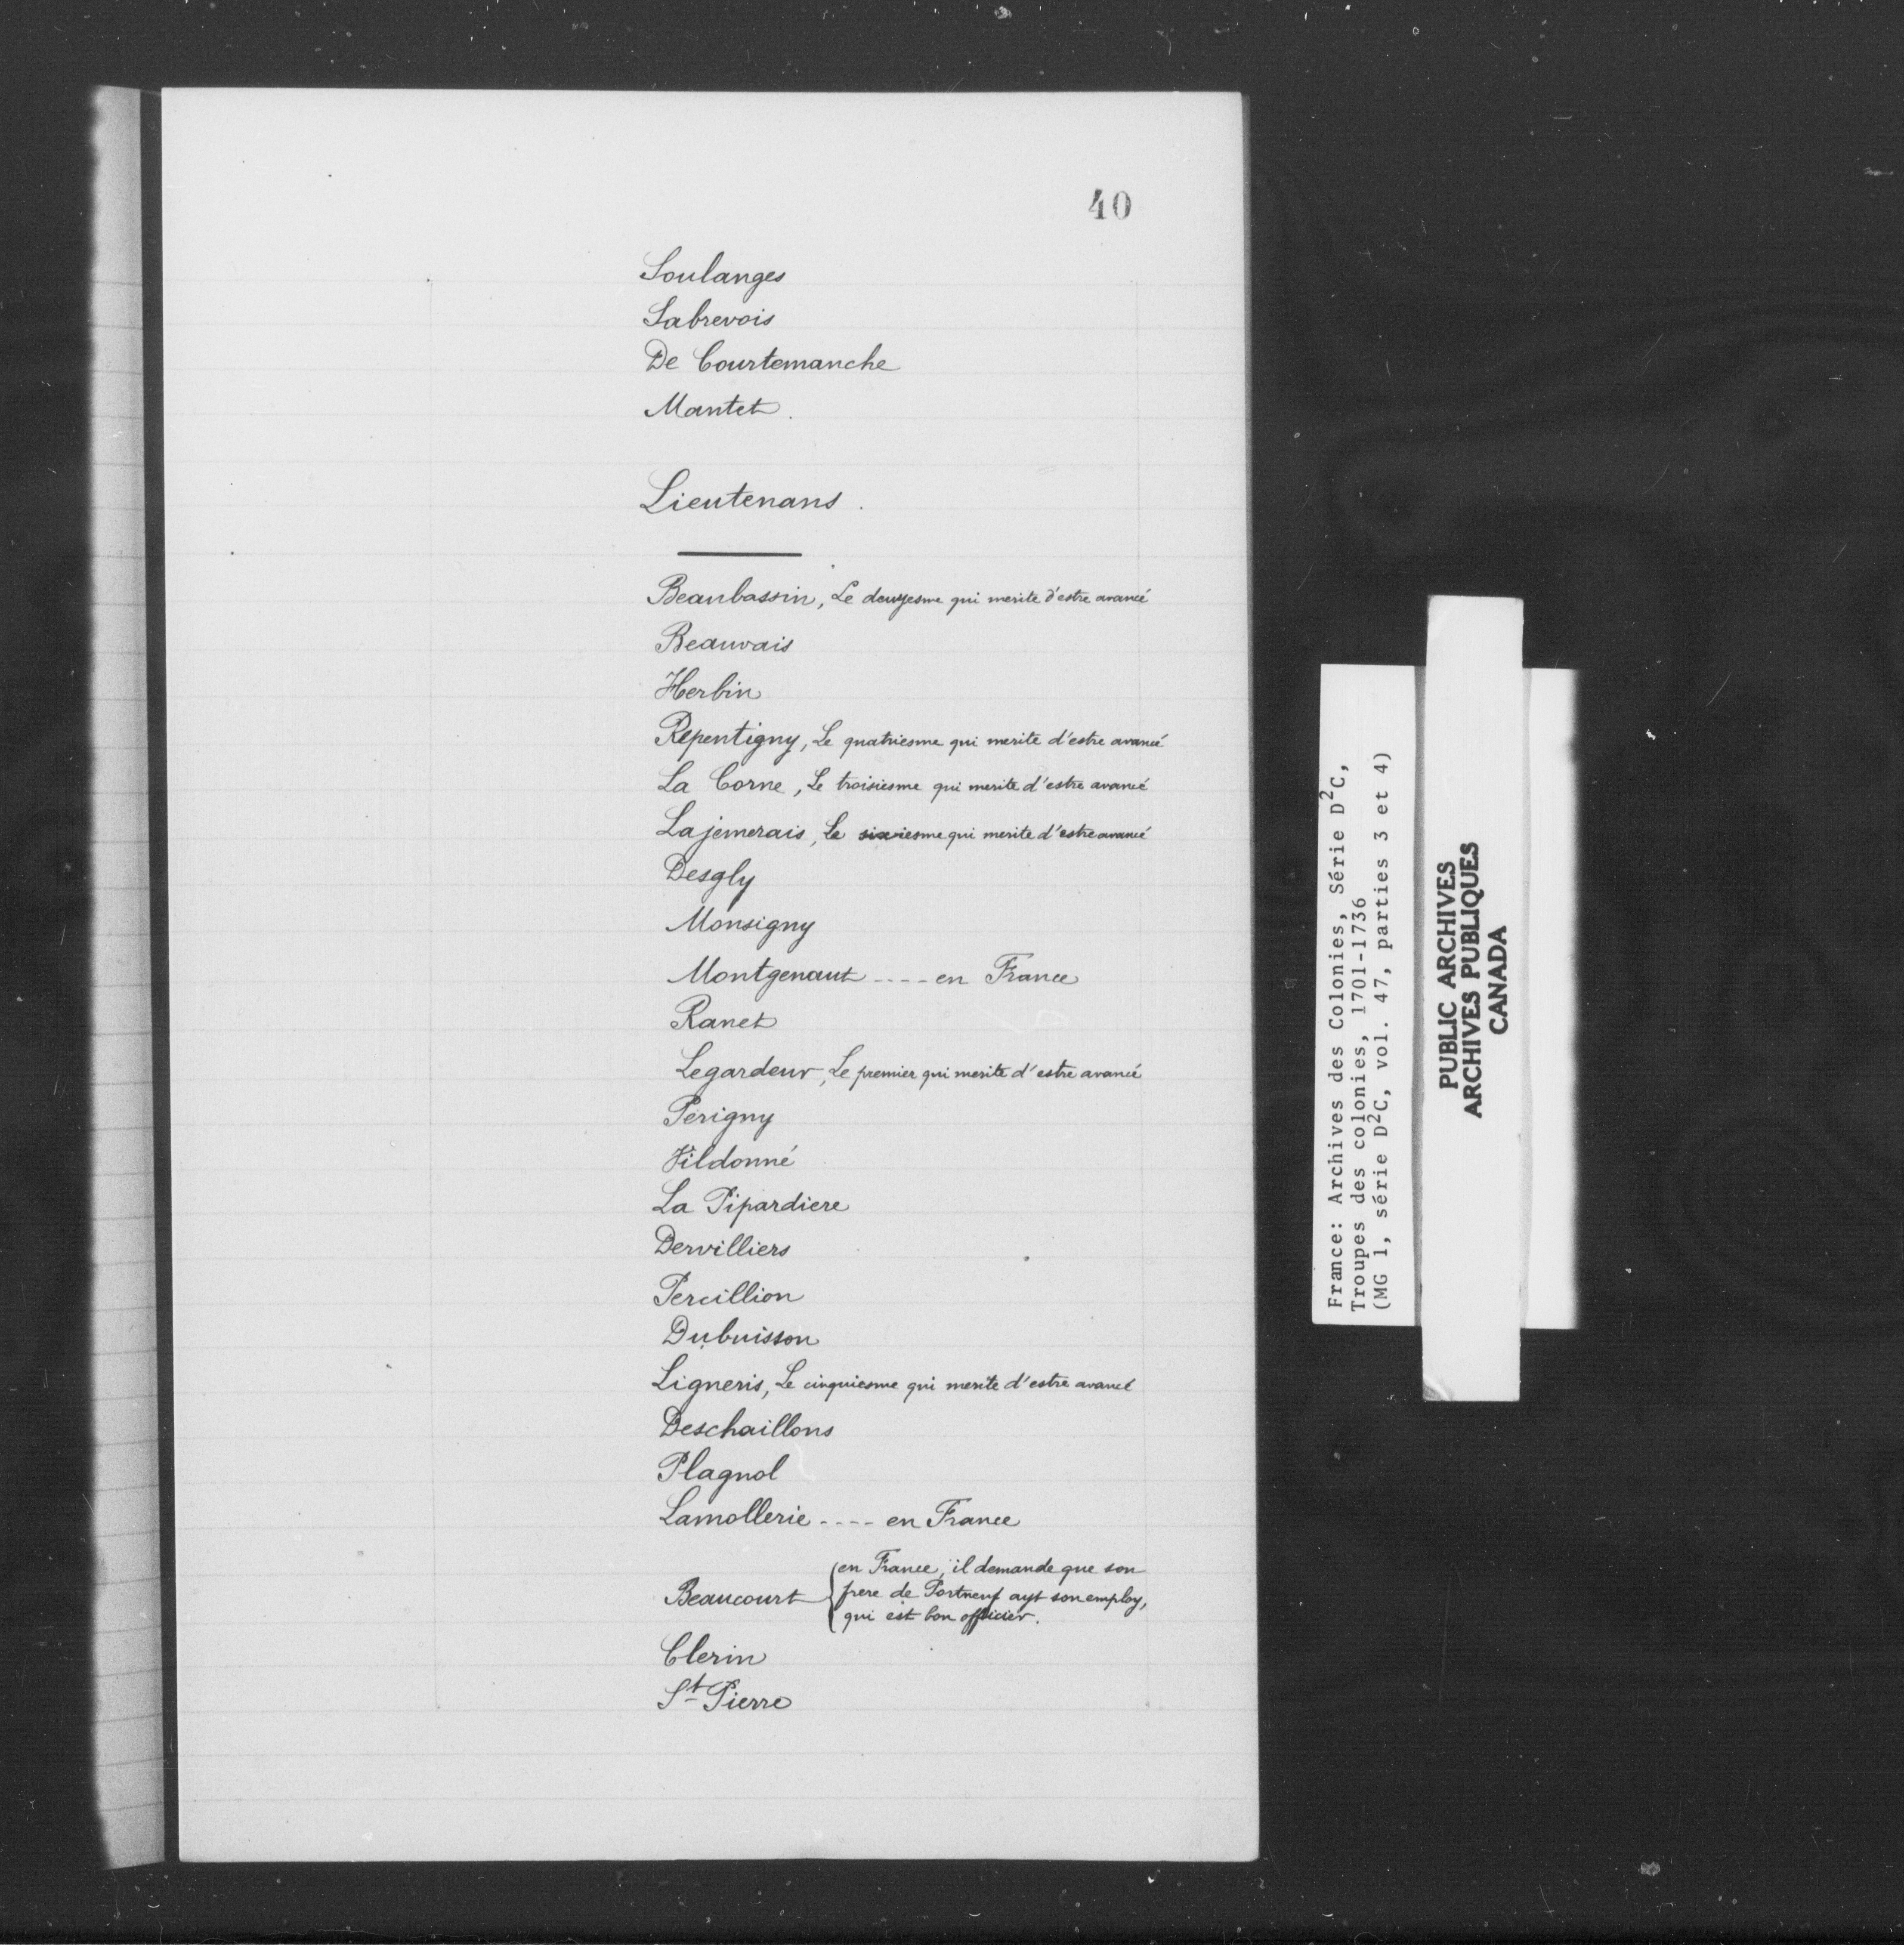 40
Soulanges
Sabrevois
De Courtemanche
Mantet.
Lieutenans.
Beaubassin, Le deuxesme qui merite d'estre avancé
Beauvais
Herbin
Repentigny, Le quatriesme qui merite d'estre avancé
La Corne, Le troisiesme qui merite d'estre avancé
Lajemerais, Le sixiesme qui merite d'estre avancé
Desgly
Monsigny
Montgenaut ---- en France
Ranet
Legardeur, Le premier qui merite d'estre avancé
Perigny
Vildonné
La Pipardiere
Dervilliers
Percillion
Dubuisson
Ligneris, Le cinquiesme qui merite d'estre avancé
Deschaillons
Plagnol
Lamollerie ---- en France
Beaucourt { en France, il demande que son
frere de Portneuf ayt son employ,
qui est bon officier.
Clerin
St Pierre
France: Archives des Colonies, Série D²C,
Troupes des colonies, 1701-1736
(MG 1, série D²C, vol. 47, parties 3 et 4)
PUBLIC ARCHIVES
ARCHIVES PUBLIQUES
CANADA